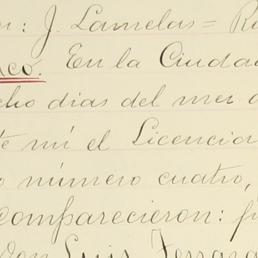 n: J. Lamelas = R
co. En la Ciudad
cho dias del mes d
te mi el Licencia
o número cuatro,
comparecieron: p
Don Luis Ferrara